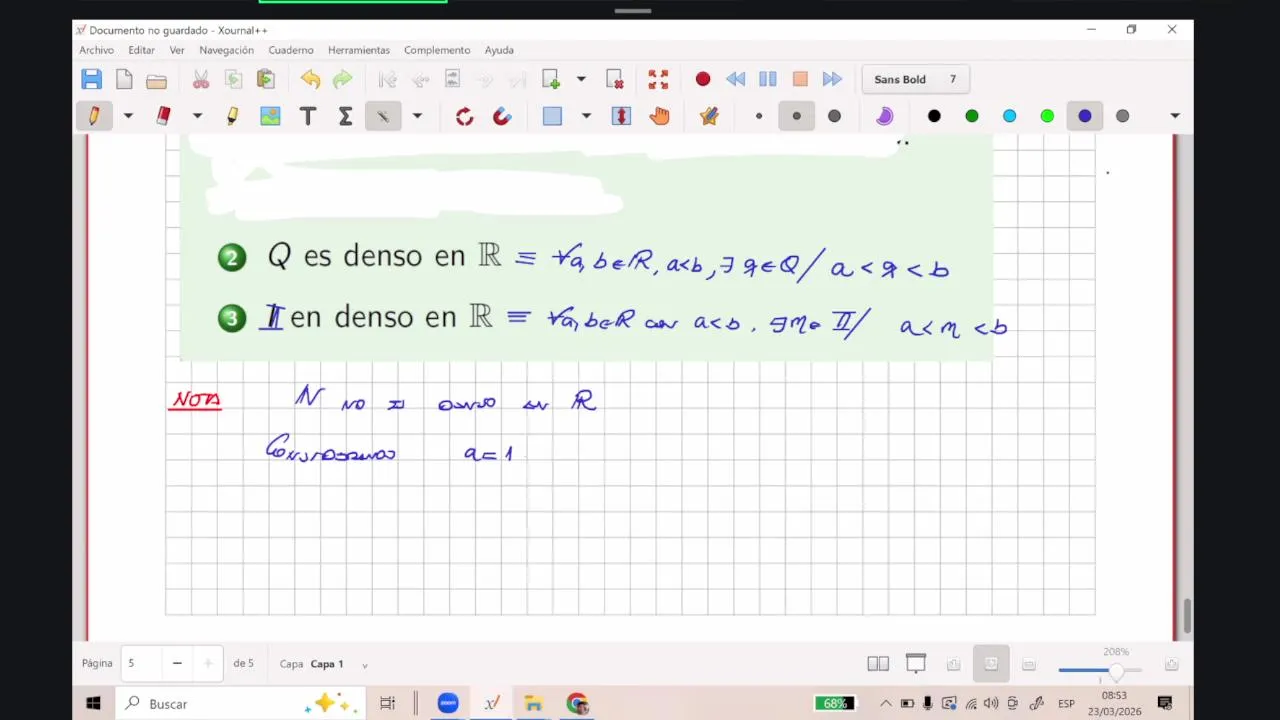 Documento no guardado - Xournal++
Archivo Editar Ver Navegación Cuaderno Herramientas Complemento Ayuda
Sans Bold 7
2 Q es denso en ℝ ≡ ∀a, b ∈ ℝ, a<b, ∃ q ∈ Q / a < q < b
3 𝕀 en denso en ℝ ≡ ∀a, b ∈ ℝ con a<b, ∃ η ∈ 𝕀 / a < η < b
NOTA N no es denso en ℝ
Consideremos a = 1
Página 5 de 5 Capa Capa 1
208%
Buscar
zoom
68%
ESP
08:53
23/03/2026